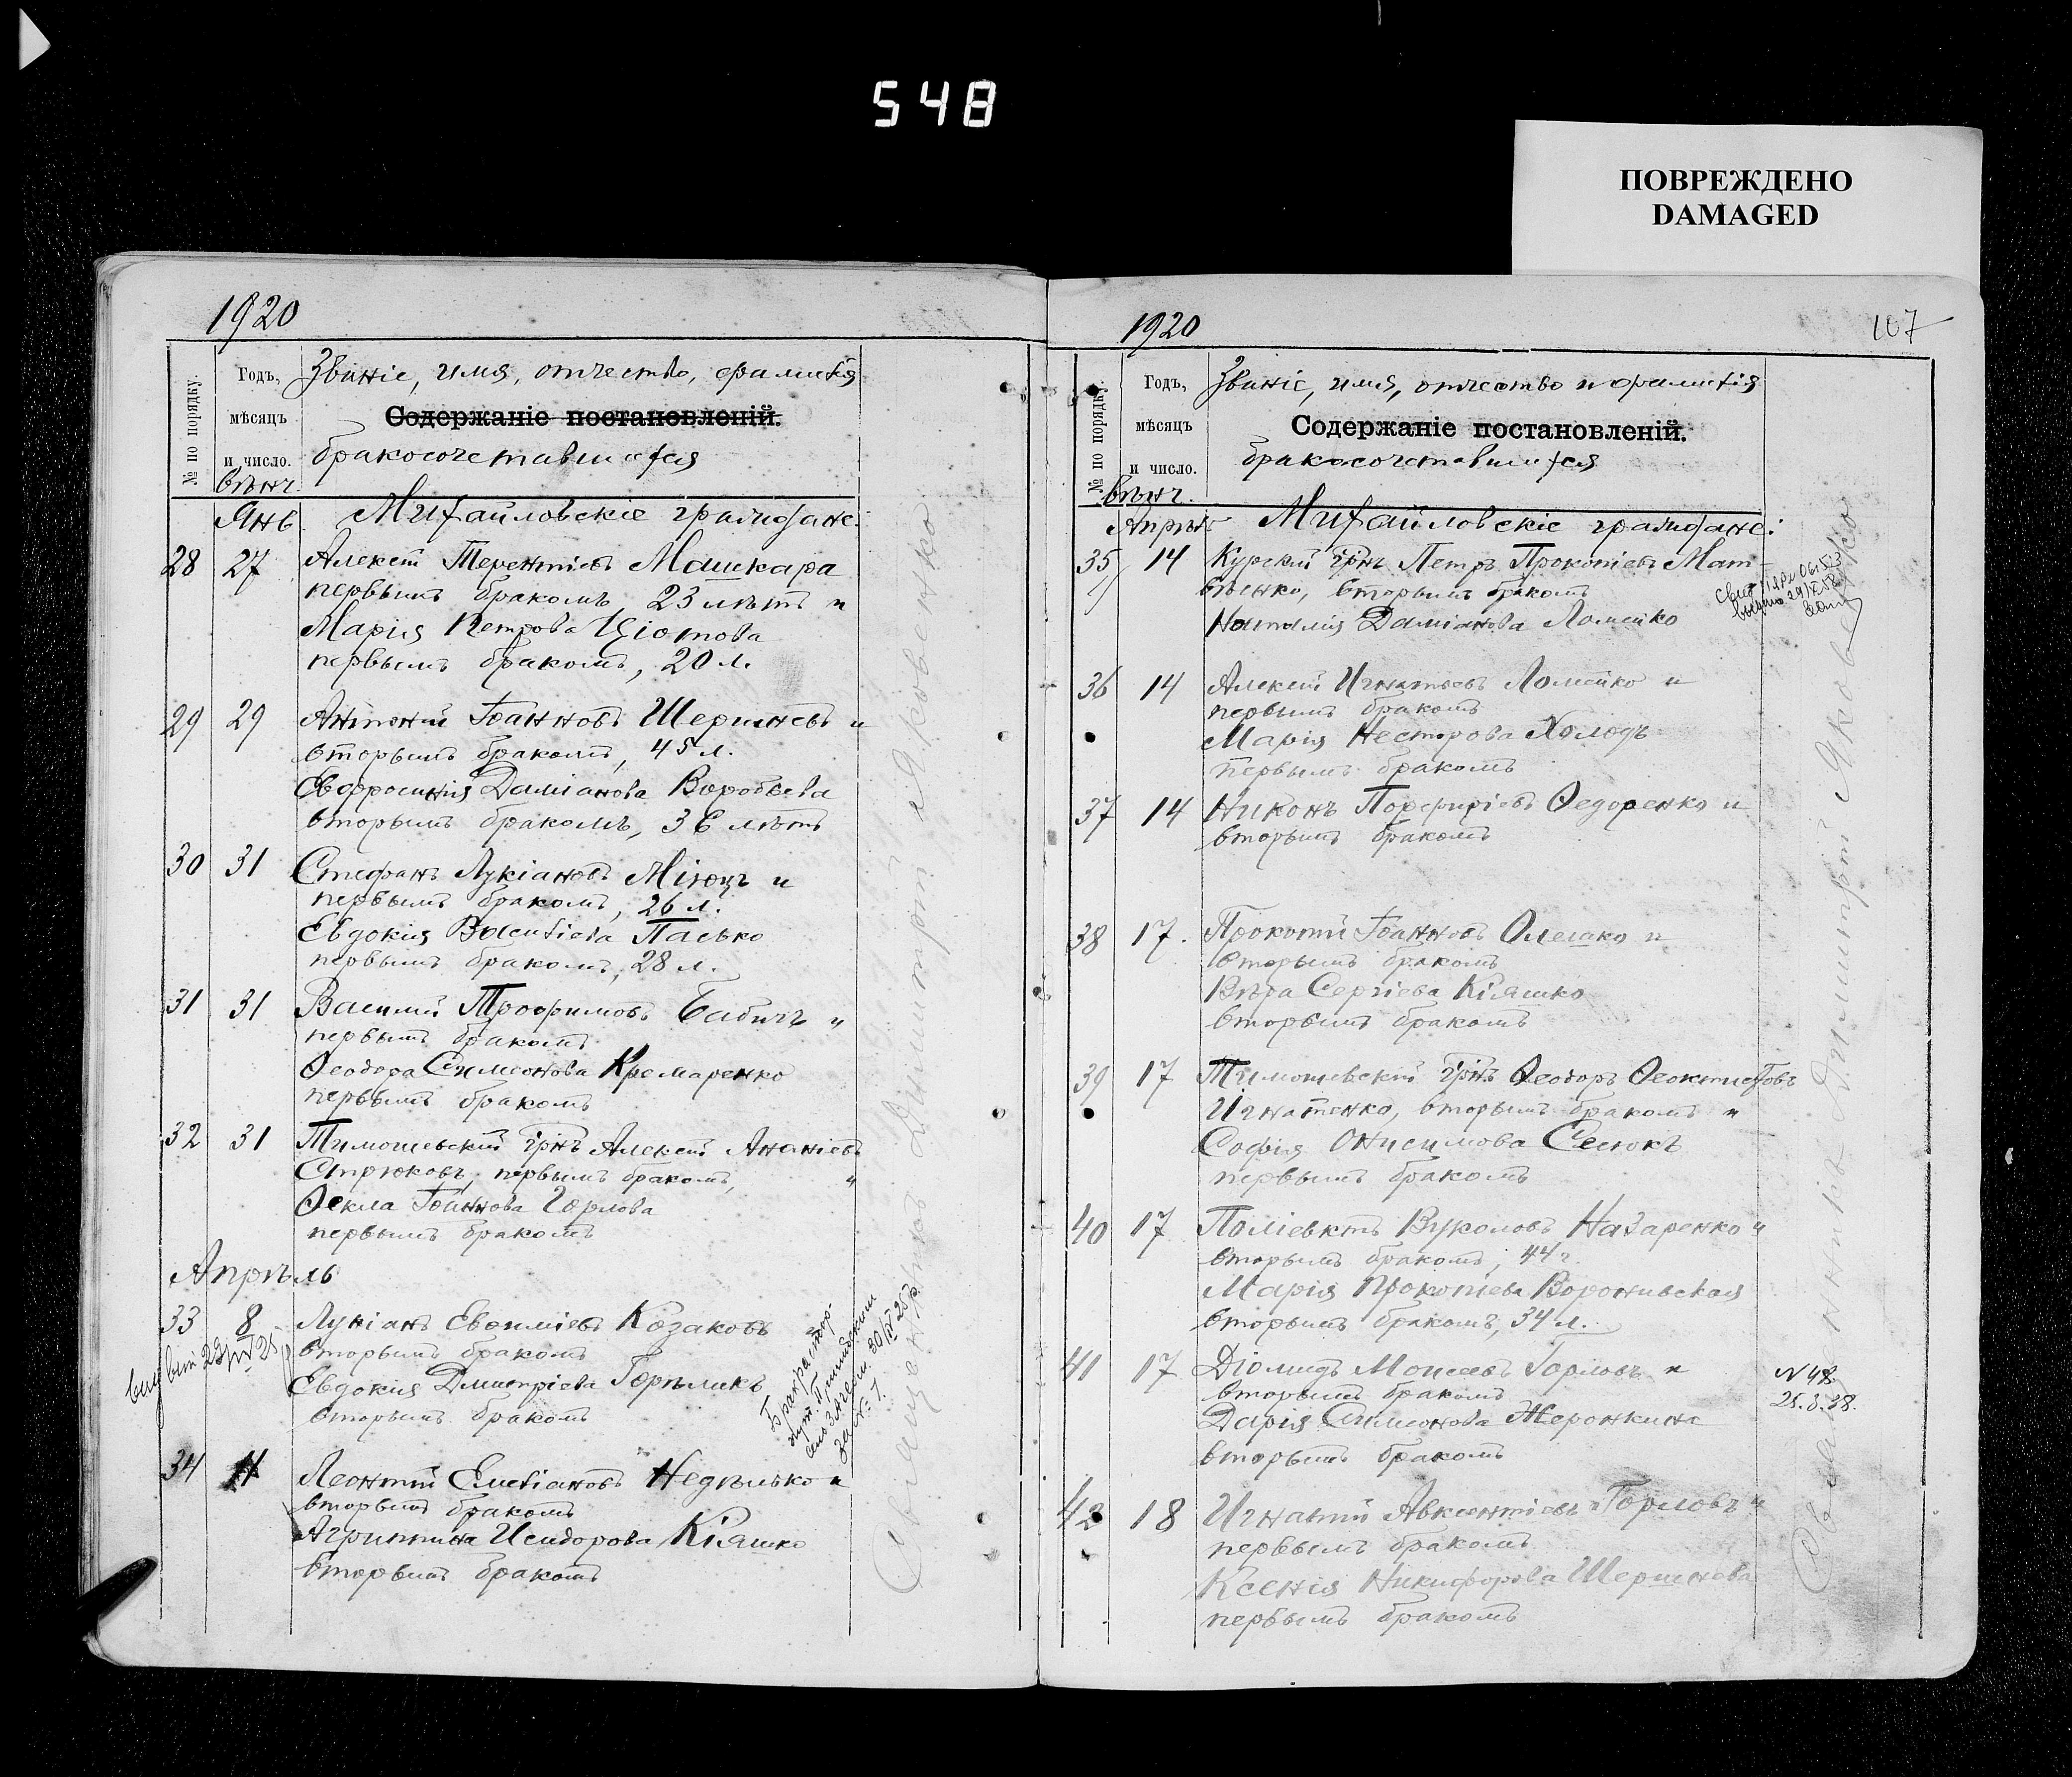 548
ПОВРЕЖДЕНО
DAMAGED
1920
№ по порядку.
Годъ,
мѣсяцъ
и число.
вѣнч.
Званіе, имя, отчество, фамилія
Содержаніе постановленій.
бракосочетавшихся
Янв. Михайловскіе граждане:
28 27 Алексѣй Терентіевъ Машкара
первымъ бракомъ, 23 лѣтъ и
Марія Петрова
первымъ бракомъ, 20 л.
29 29 Антоній Іоанновъ Шершневъ и
вторымъ бракомъ, 45 л.
Евфросинія Даміанова Воробьева
вторымъ бракомъ, 36 лѣтъ
30 31 Стефанъ Лукіановъ и
первымъ бракомъ, 26 л.
Евдокія Васильева Пасько
первымъ бракомъ, 28 л.
31 31 Василій Трофимовъ Бабичъ и
первымъ бракомъ
Ѳеодора Симеонова Кремаренко
первымъ бракомъ
32 31 Тимошевскій грнъ Алексѣй Ананіевъ
Стрюковъ, первымъ бракомъ, и
Ѳекла Іоаннова Горлова
первымъ бракомъ
Апрѣль
33 8 Лукіанъ Евѳиміевъ Козаковъ и
вторымъ бракомъ
Евдокія Димитріева Горѣликъ
вторымъ бракомъ
34 11 Леонтій Емельяновъ Недѣлько и
вторымъ бракомъ
Агриппина Исидорова Кіяшко
вторымъ бракомъ
Бракъ расторг
30/IV 25 г.
за № 7.
Священникъ Димитрій Яковенко
1920
107
№ по порядку.
Годъ,
мѣсяцъ
и число.
вѣнч.
Званіе, имя, отчество и фамилія
Содержаніе постановленій.
бракосочетавшихся
Апрѣль Михайловскіе граждане:
35 14 Курскій грнъ Петръ Прокопіевъ Мат-
вѣенко, вторымъ бракомъ
Наталія Даміанова Ломейко
36 14 Алексѣй Игнатьевъ Ломейко и
первымъ бракомъ
Марія Несторова Холодъ
первымъ бракомъ
37 14 Никонъ Порфиріевъ Ѳедоренко и
вторымъ бракомъ
38 17. Прокопій Іоанновъ Олешко и
вторымъ бракомъ
Вѣра Сергіева Кіяшко
вторымъ бракомъ
39 17 Тимошевскій грнъ Ѳеодоръ Ѳеоктистовъ
Игнатенко, вторымъ бракомъ и
Софія Онисимова Сенюкъ
первымъ бракомъ
40 17 Поліевктъ Вуколовъ Назаренко и
вторымъ бракомъ, 44 г.
Марія Прокопіева
вторымъ бракомъ, 34 л.
41 17 Діомидъ Моисеевъ Горловъ и
вторымъ бракомъ
Дарія Симеонова Жеронкина
вторымъ бракомъ
№ 48
25.3.38.
42 18 Игнатій Авксентіевъ Горловъ и
первымъ бракомъ
Ксенія Никифорова Шершнева
первымъ бракомъ
Священникъ Димитрій Яковенко